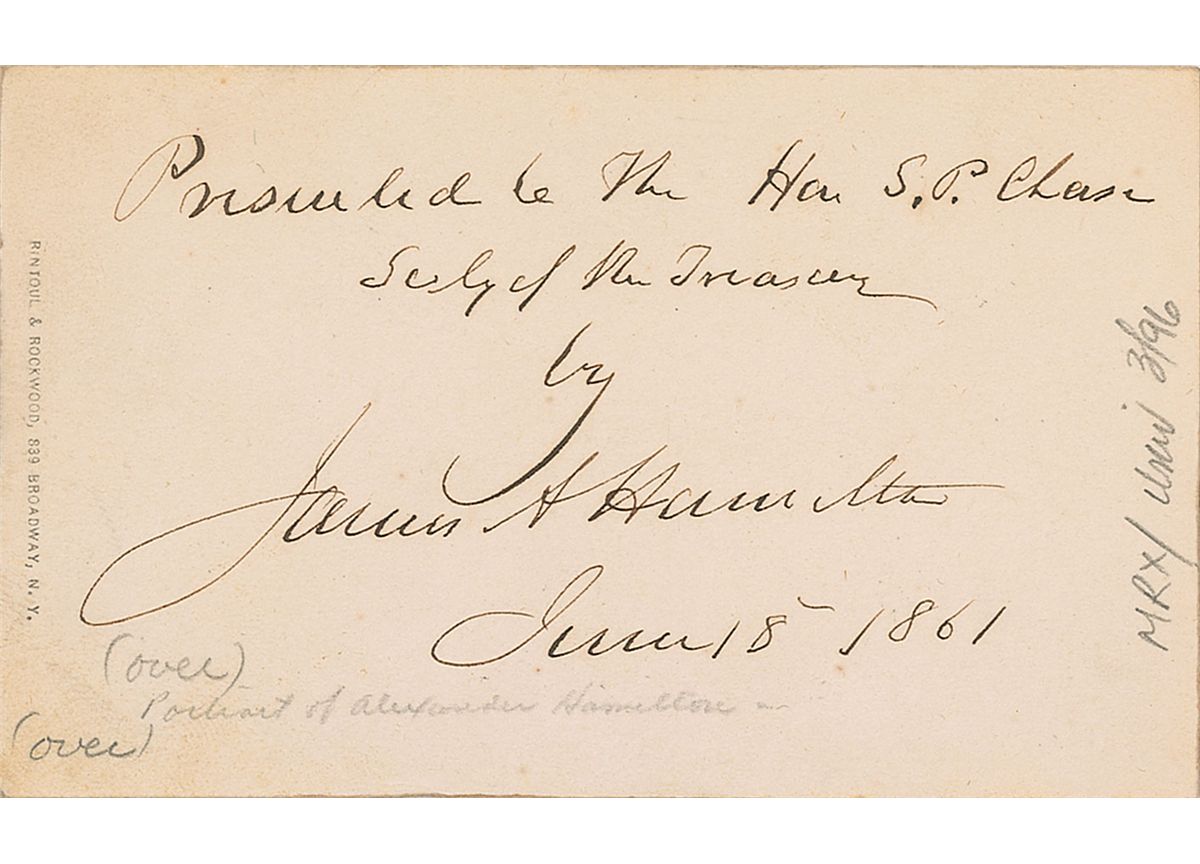 Presented to The Hon S. P. Chase
Secty of the Treasury
by
James A Hamilton
June 18 1861
(over)
Portrait of Alexander Hamilton
(over)
RINTOUL & ROCKWOOD, 839 BROADWAY, N. Y.
MRX/ 3/96